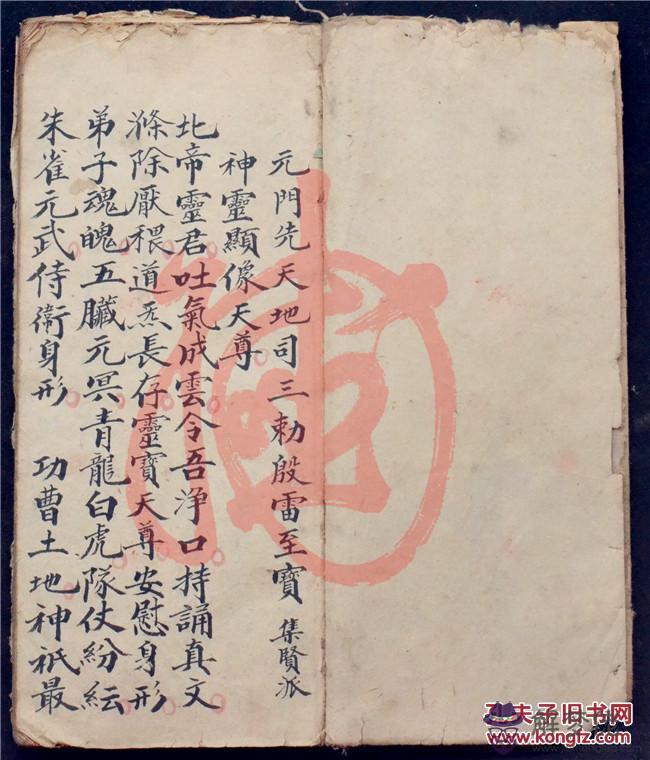 元門先天地司三勅殷雷至寶 集賢派
神靈顯像天尊
北帝靈君吐氣成雲令吾淨口持誦真文
滌除厭穢道炁長存靈寶天尊安慰身形
弟子魂魄五臟元冥青龍白虎隊仗紛紜
朱雀元武侍衛身形 功曹土地神祇最
孔夫子旧书网
www.kongfz.com